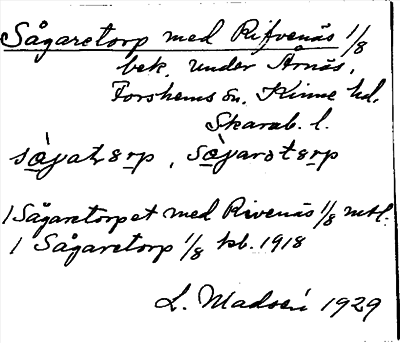 Sågaretorp med Rifvenäs 1/8
bek. under Årnäs,
Forshems sn. Kinne hd.
Skarab. l.
sàgatorp, sàgarotorp
1 Sågaretorpet med Rivenäs 1/8 mtl.
1 Sågaretorp 1/8 kb. 1918
L. Madsén 1929